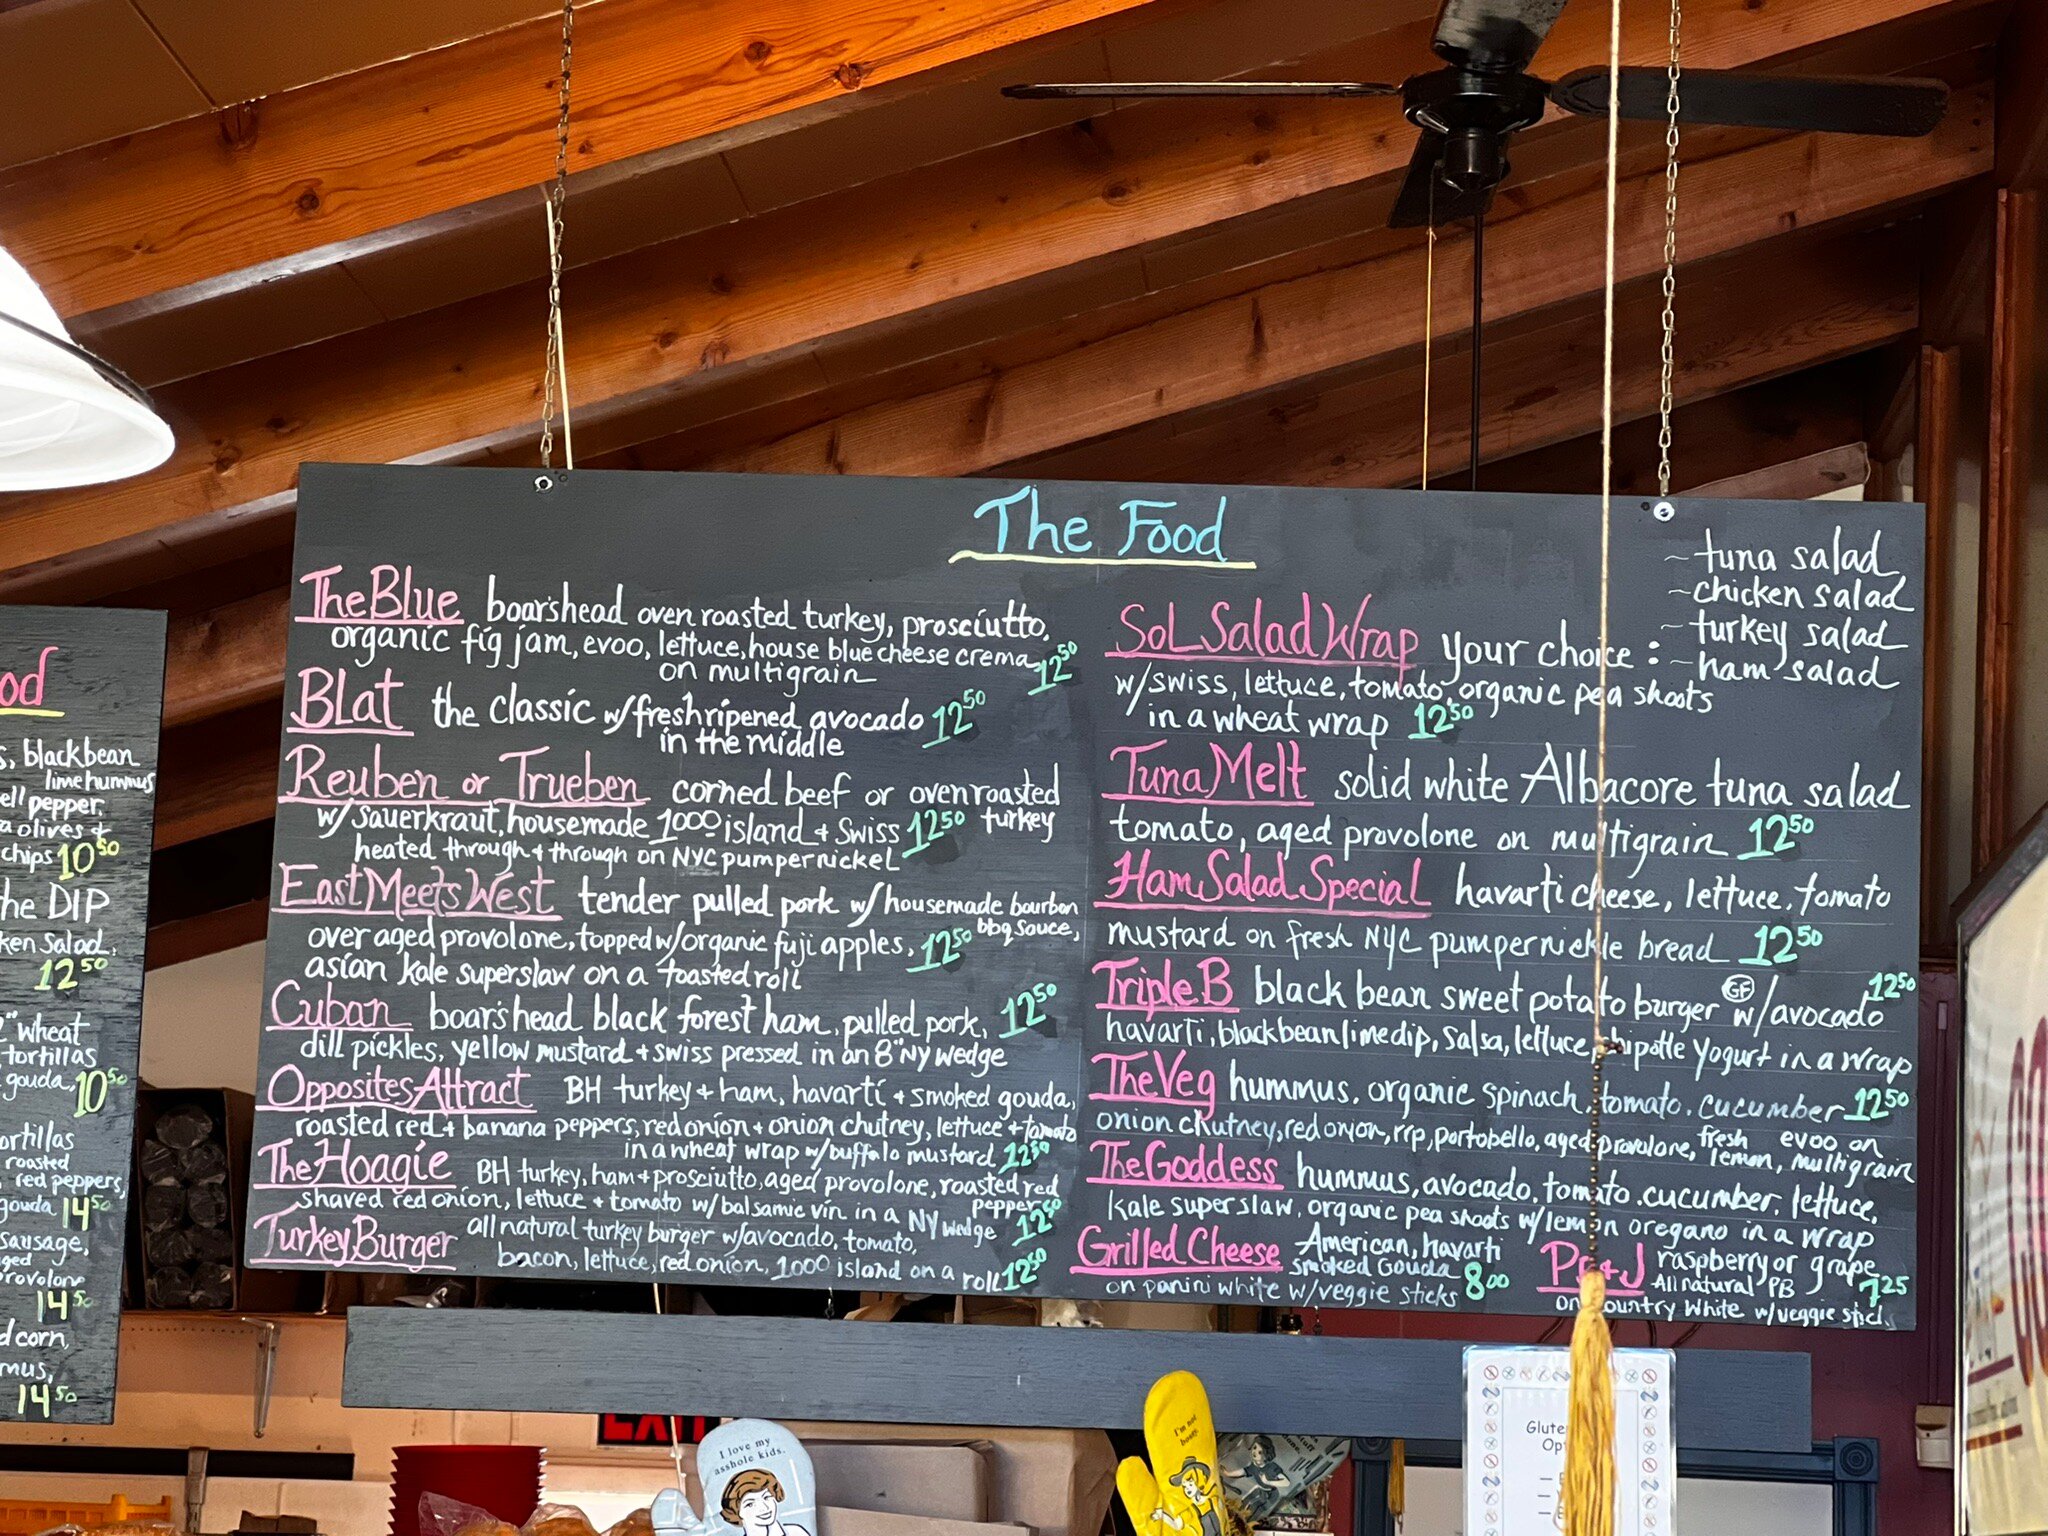 The Food
The Blue boarshead oven roasted turkey, prosciutto,
organic fig jam, evoo, lettuce, house blue cheese crema 12.50
on multigrain
BLat the classic w/ fresh ripened avocado 12.50
in the middle
Reuben or Trueben corned beef or oven roasted
w/ sauerkraut, housemade 1000 island + Swiss 12.50 turkey
heated through + through on NYC pumpernickel
East Meets West tender pulled pork w/ housemade bourbon
bbq sauce,
over aged provolone, topped w/ organic fuji apples, 12.50
asian kale superslaw on a toasted roll
Cuban boar's head black forest ham, pulled pork, 12.50
dill pickles, yellow mustard + swiss pressed in an 8" NY wedge
Opposites Attract BH turkey + ham, havarti + smoked gouda,
roasted red + banana peppers, red onion + onion chutney, lettuce + tomato
in a wheat wrap w/ buffalo mustard 12.50
The Hoagie BH turkey, ham + prosciutto, aged provolone, roasted red
pepper
shaved red onion, lettuce + tomato w/ balsamic vin in a NY wedge 12.50
Turkey Burger all natural turkey burger w/ avocado, tomato,
bacon, lettuce, red onion, 1000 island on a roll 12.50
~ tuna salad
~ chicken salad
~ turkey salad
~ ham salad
SoL Salad Wrap your choice :
w/ swiss, lettuce, tomato, organic pea shoots
in a wheat wrap 12.50
Tuna Melt solid white Albacore tuna salad
tomato, aged provolone on multigrain 12.50
Ham Salad Special havarti cheese, lettuce, tomato
mustard on fresh NYC pumpernickle bread 12.50
Triple B black bean sweet potato burger GF w/ avocado 12.50
havarti, black bean lime dip, salsa, lettuce, chipotle yogurt in a wrap
The Veg hummus, organic spinach, tomato, cucumber 12.50
onion chutney, red onion, rrp, portobello, aged provolone, fresh lemon, evoo on multigrain
The Goddess hummus, avocado, tomato, cucumber, lettuce,
kale super slaw, organic pea shoots w/ lemon oregano in a wrap
Grilled Cheese American, havarti
smoked Gouda 8.00
on panini white w/ veggie sticks
PB+J raspberry or grape
All natural PB 7.25
on country white w/ veggie stick
od
s, black bean
lime hummus
ell pepper,
a olives +
chips 10.50
he DIP
ken salad,
12.50
" wheat
tortillas
gouda, 10.50
ortillas
roasted
red peppers,
gouda 14.50
sausage,
aged
rovolone
14.50
d corn,
mus,
14.50
EXIT
I love my
asshole kids.
I'm not
bossy.
Glute
Opt